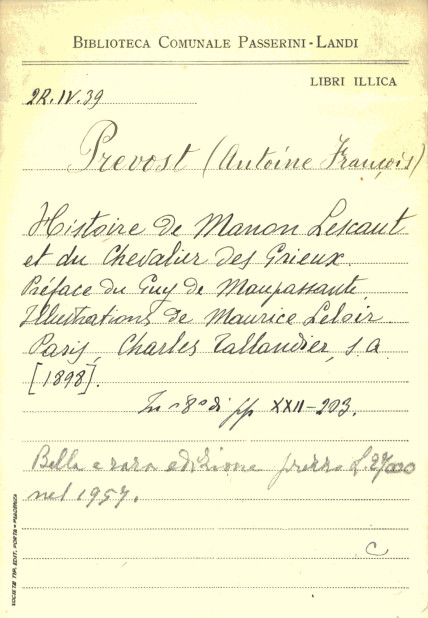 BIBLIOTECA COMUNALE PASSERINI-LANDI
LIBRI ILLICA
22.IV.39
Prevost (Antoine François)
Histoire de Manon Lescaut
et du Chevalier des Grieux.
Préface du Guy de Maupassante
Illustrations de Maurice Leloir
Paris, Charles Tallandier, s a
[1898].
In-8° di pp XXII-203.
Bella e rara edizione prezzo L.
nel 1957.
C